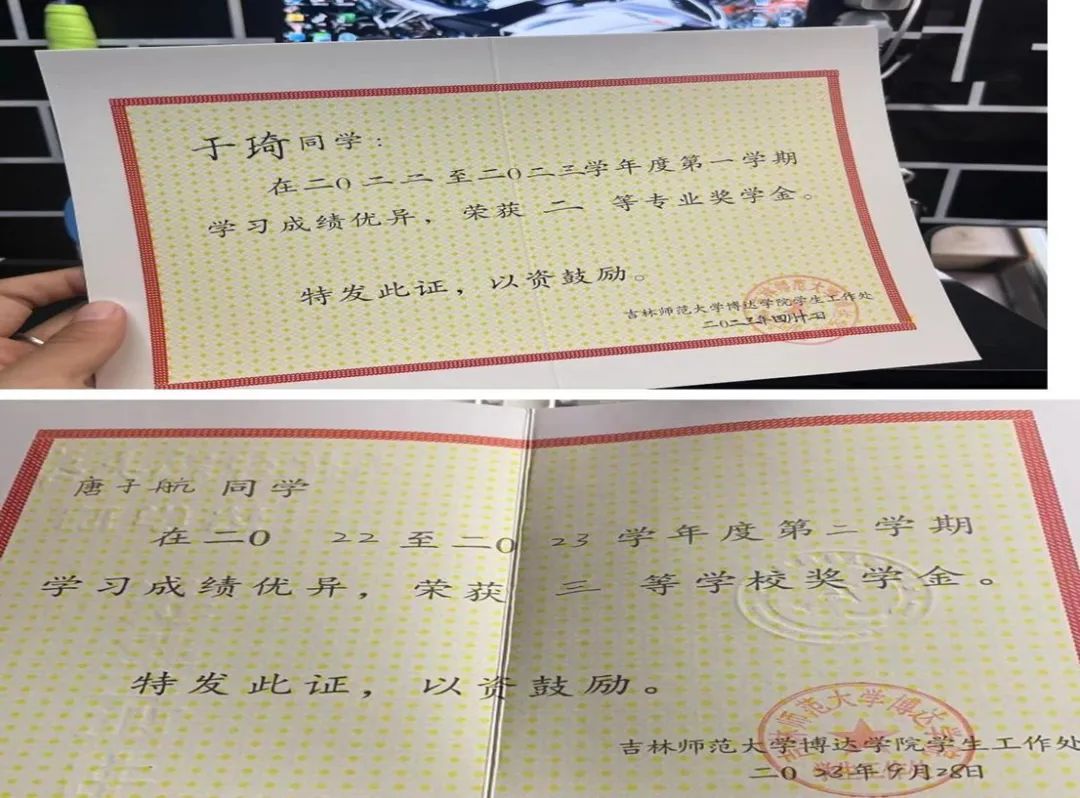 于琦同学：
在二0二二至二0二三学年度第一学期
学习成绩优异，荣获 二 等专业奖学金。
特发此证，以资鼓励。
吉林师范大学博达学院学生工作处
二0二三年四月十二日
唐子航 同学
在二0 22 至二0 23 学年度第二学期
学习成绩优异，荣获 三 等学校奖学金。
特发此证，以资鼓励。
吉林师范大学博达学院学生工作处
二0 23年9月28日